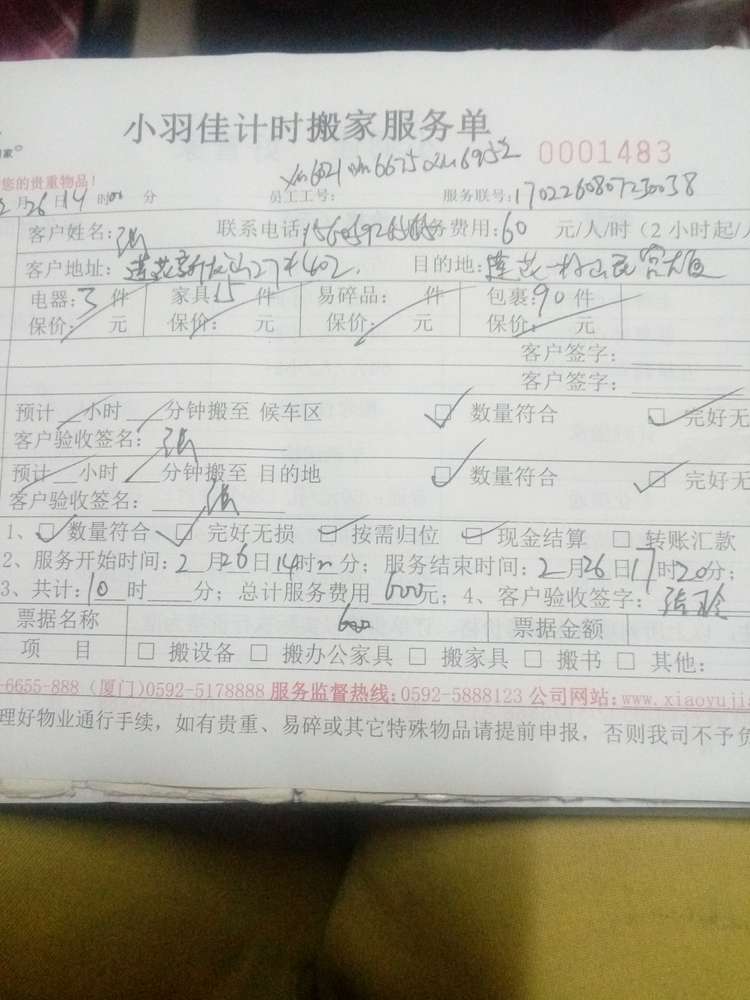 小羽佳计时搬家服务单
0001483
您的贵重物品！
2月26日14时00分 员工工号： 服务联号：1702260807230038
客户姓名：张 联系电话： 服务费用：60 元/人/时（2小时起/
客户地址：莲花 27 402 目的地：莲花一村
电器：3件 家具15件 易碎品： 件 包裹：90件
保价： 元 保价： 元 保价： 元 保价： 元
客户签字：
客户签字：
预计 小时 分钟搬至 候车区 □ 数量符合 □ 完好无
客户验收签名：张
预计 小时 分钟搬至 目的地 □ 数量符合 □ 完好无
客户验收签名：张
1、□ 数量符合 □ 完好无损 □ 按需归位 □ 现金结算 □ 转账汇款
2、服务开始时间：2月26日14时 分；服务结束时间：2月26日17时20分；
3、共计：10时 分；总计服务费用 600元；4、客户验收签字：张
票据名称 600 票据金额
项 目 □ 搬设备 □ 搬办公家具 □ 搬家具 □ 搬书 □ 其他：
-6655-888 (厦门)0592-5178888 服务监督热线：0592-5888123 公司网站：www.xiaoyujia
理好物业通行手续，如有贵重、易碎或其它特殊物品请提前申报，否则我司不予负